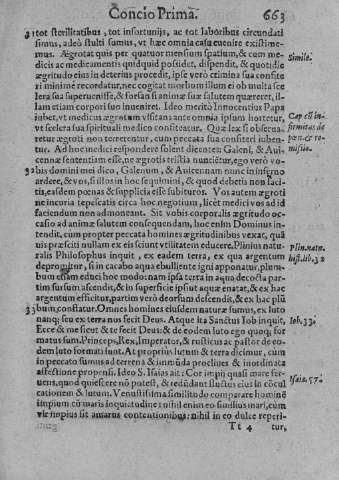 Concio Prima. 663
31 tot sterilitatibus, tot infortunijs, ac tot laboribus circundati
simus, adeò stulti sumus, vt hæc omnia casu euenire existime-
mus. Ægrotat quis per quatuor mensium spatium, & cum me-
Simile.
dicis ac medicamentis quidquid possidet, dispendit, & quotidie
ægritudo eius in deterius procedit, ipse verò crimina sua confite
ri minimè recordatur, nec cogitat morbum illum ei ob multa sce
lera sua superuenisse, & forsan si animæ suæ salutem quæreret, il-
lam etiam corpori suo inueniret. Ideo meritò Innocentius Papa
iubet, vt medicus ægrotum visitans ante omnia ipsum hortetur,
Cap cũ in-
vt scelera sua spirituali medico confiteatur. Quæ lex si obserua
firmitas de
retur ægroti non terrerentur, cum peccata sua confiteri iuben-
pœn. & re-
tur. Ad hoc medici respondere solent dicentes: Galeni, & Aui-
missio.
cennæ sententiam esse, ne ægrotis tristia nuncientur, ego verò vo-
32 bis domini mei dico, Galenum, & Auicennam nunc in inferno
ardere, & vos, si illos in hoc sequimini, & quod debetis non faci-
tis, easdem pœnas & supplicia esse subituros. Vos autem ægroti
ne incuria tepescatis circa hoc negotium, licèt medici vos ad id
faciendum non admoneant. Sit vobis corporalis ægritudo oc-
casio ad animæ salutem consequendam, hoc enim Dominus in-
tendit, cum propter peccata homines ægritudinibus vexat, quã
uis præsciti nullam ex eis sciunt vtilitatem educere. Plinius natu-
Plin. natu.
ralis Philosophus inquit, ex eadem terra, ex qua argentum
hist. lib. 32
depromitur, si in cacabo aqua ebulliente igni apponatur, plum-
bum etiam educi hoc modo: nam ipsa terra in aqua decocta par-
tim sursum ascendit, & in superficie ipsius aquæ enatat, & ex hac
argentum efficitur, partim verò deorsum descendit, & ex hac plũ
33 bum, conflatur. Omnes homines eiusdem naturæ sumus, ex luto
nanq; seu ex terra nos fecit Deus. Atque ita Sanctus Iob inquit,
Iob. 33.
Ecce & me sicut & te fecit Deus: & de eodem luto ego quoq; for
matus sum. Princeps, Rex, Imperator, & rusticus ac pastor de eo-
dem luto formati sunt. At proprium lutum & terra dicimur, cum
in peccato sumus ad terrena & immũda procliues & inordinata
affectione propensi. Ideo S. Isaias ait: Cor impij quasi mare fer-
Isaiæ. 57.
uens, quod quiescere nõ potest, & redũdant fluctus eius in cõcul
cationem & lutum. Venustissima similitudo comparare hominẽ
impium cũ maris inquietudine: nihil enim eo similius mari, cum
vir impius sit amarus contentionibus: nihil in eo dulce reperi-
Tt 4 tur,